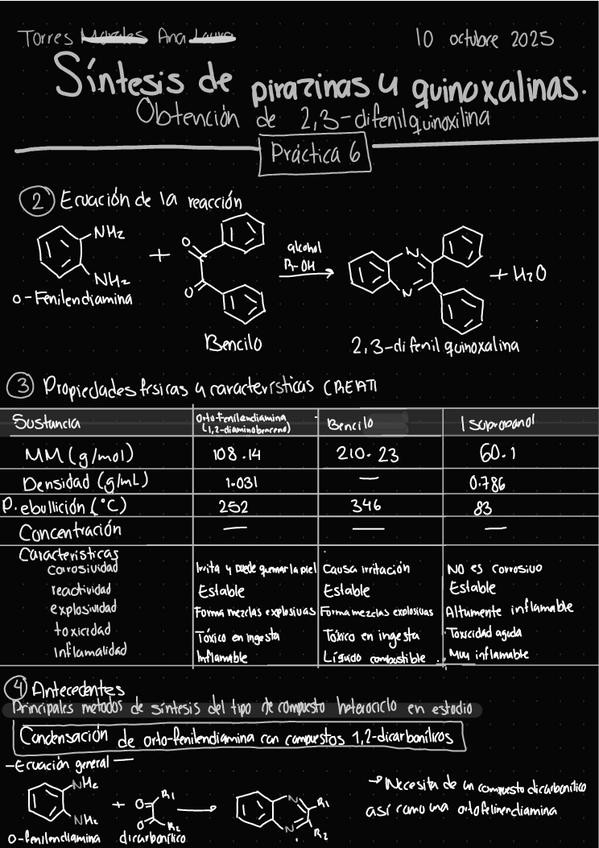 Torres Ana
10 octubre 2025
Síntesis de pirazinas y quinoxalinas.
Obtención de 2,3-difenilquinoxilina
Práctica 6
2 Ecuación de la reacción
NH2
NH2
o-Fenilendiamina
+
O
O
Bencilo
alcohol
R-OH
N
N
2,3-difenil quinoxalina
+ H2O
3 Propiedades físicas y características CREATI
Sustancia
Orto fenilendiamina
(1,2-diaminobenceno)
Bencilo
Isopropanol
MM (g/mol) 108.14 210.23 60.1
Densidad (g/mL) 1.031 — 0.786
P. ebullición (°C) 252 346 83
Concentración — — —
Características
corosividad Irrita y puede quemar la piel Causa irritación No es corrosivo
reactividad Estable Estable Estable
explosividad Forma mezclas explosivas Forma mezclas explosivas Altamente inflamable
toxicidad Tóxico en ingesta Tóxico en ingesta Toxicidad aguda
Inflamalidad Inflamable Líquido combustible Muy inflamable
4 Antecedentes
Principales metodos de síntesis del tipo de compuesto heterociclo en estudio
Condensación de orto-fenilendiamina con compuestos 1,2-dicarbonílicos
-Ecuación general —
NH2
NH2
o-fenilendiamina
+
O R1
O R2
dicarbonílico
N R1
N R2
→ Necesita de un compuesto dicarbonílico
así como una